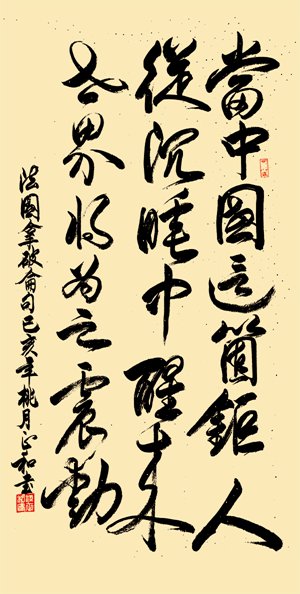 當中國這箇鉅人
從沉睡中醒來
世界將為之震動
法國拿破侖句己亥年桃月正和書